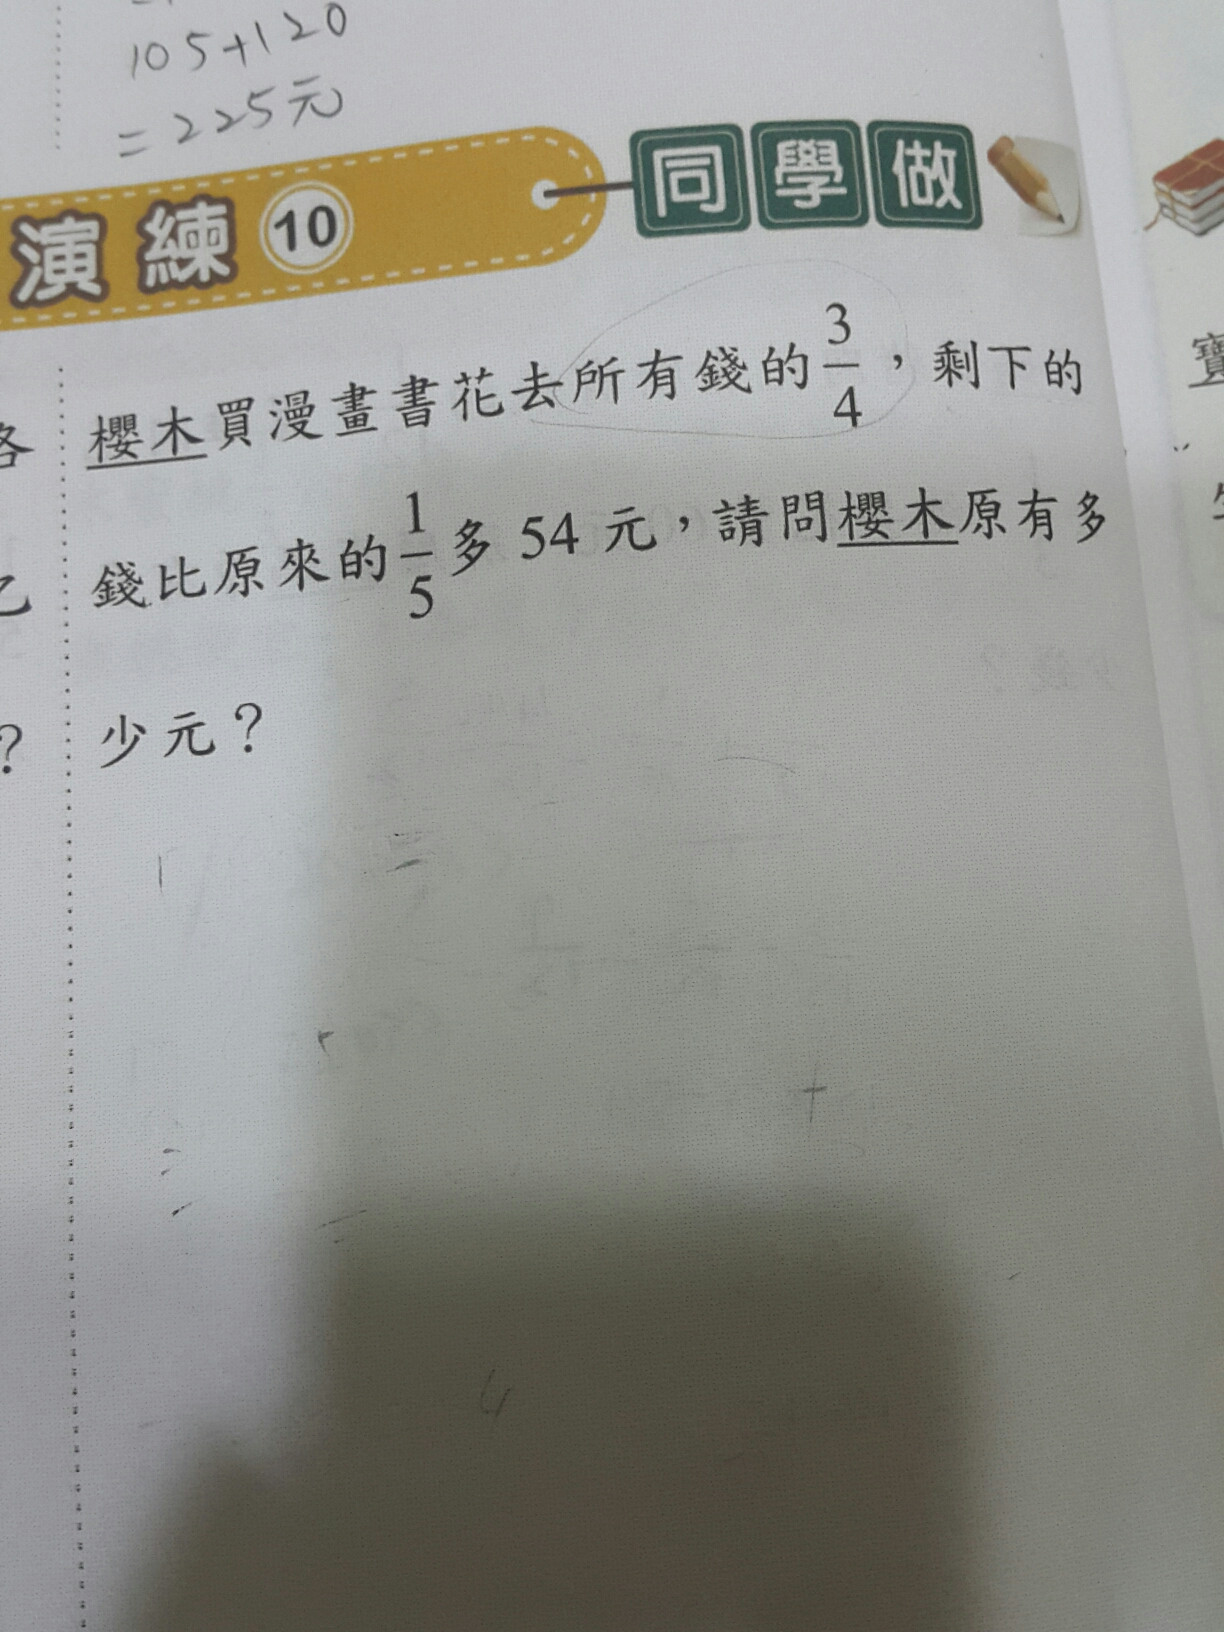 105+120
=225元
演練 10 同學做
櫻木買漫畫書花去所有錢的3/4，剩下的
錢比原來的1/5多 54 元，請問櫻木原有多
少元？
各
乙
？